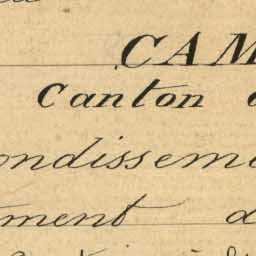 CAM
Canton
ondissem
ment d